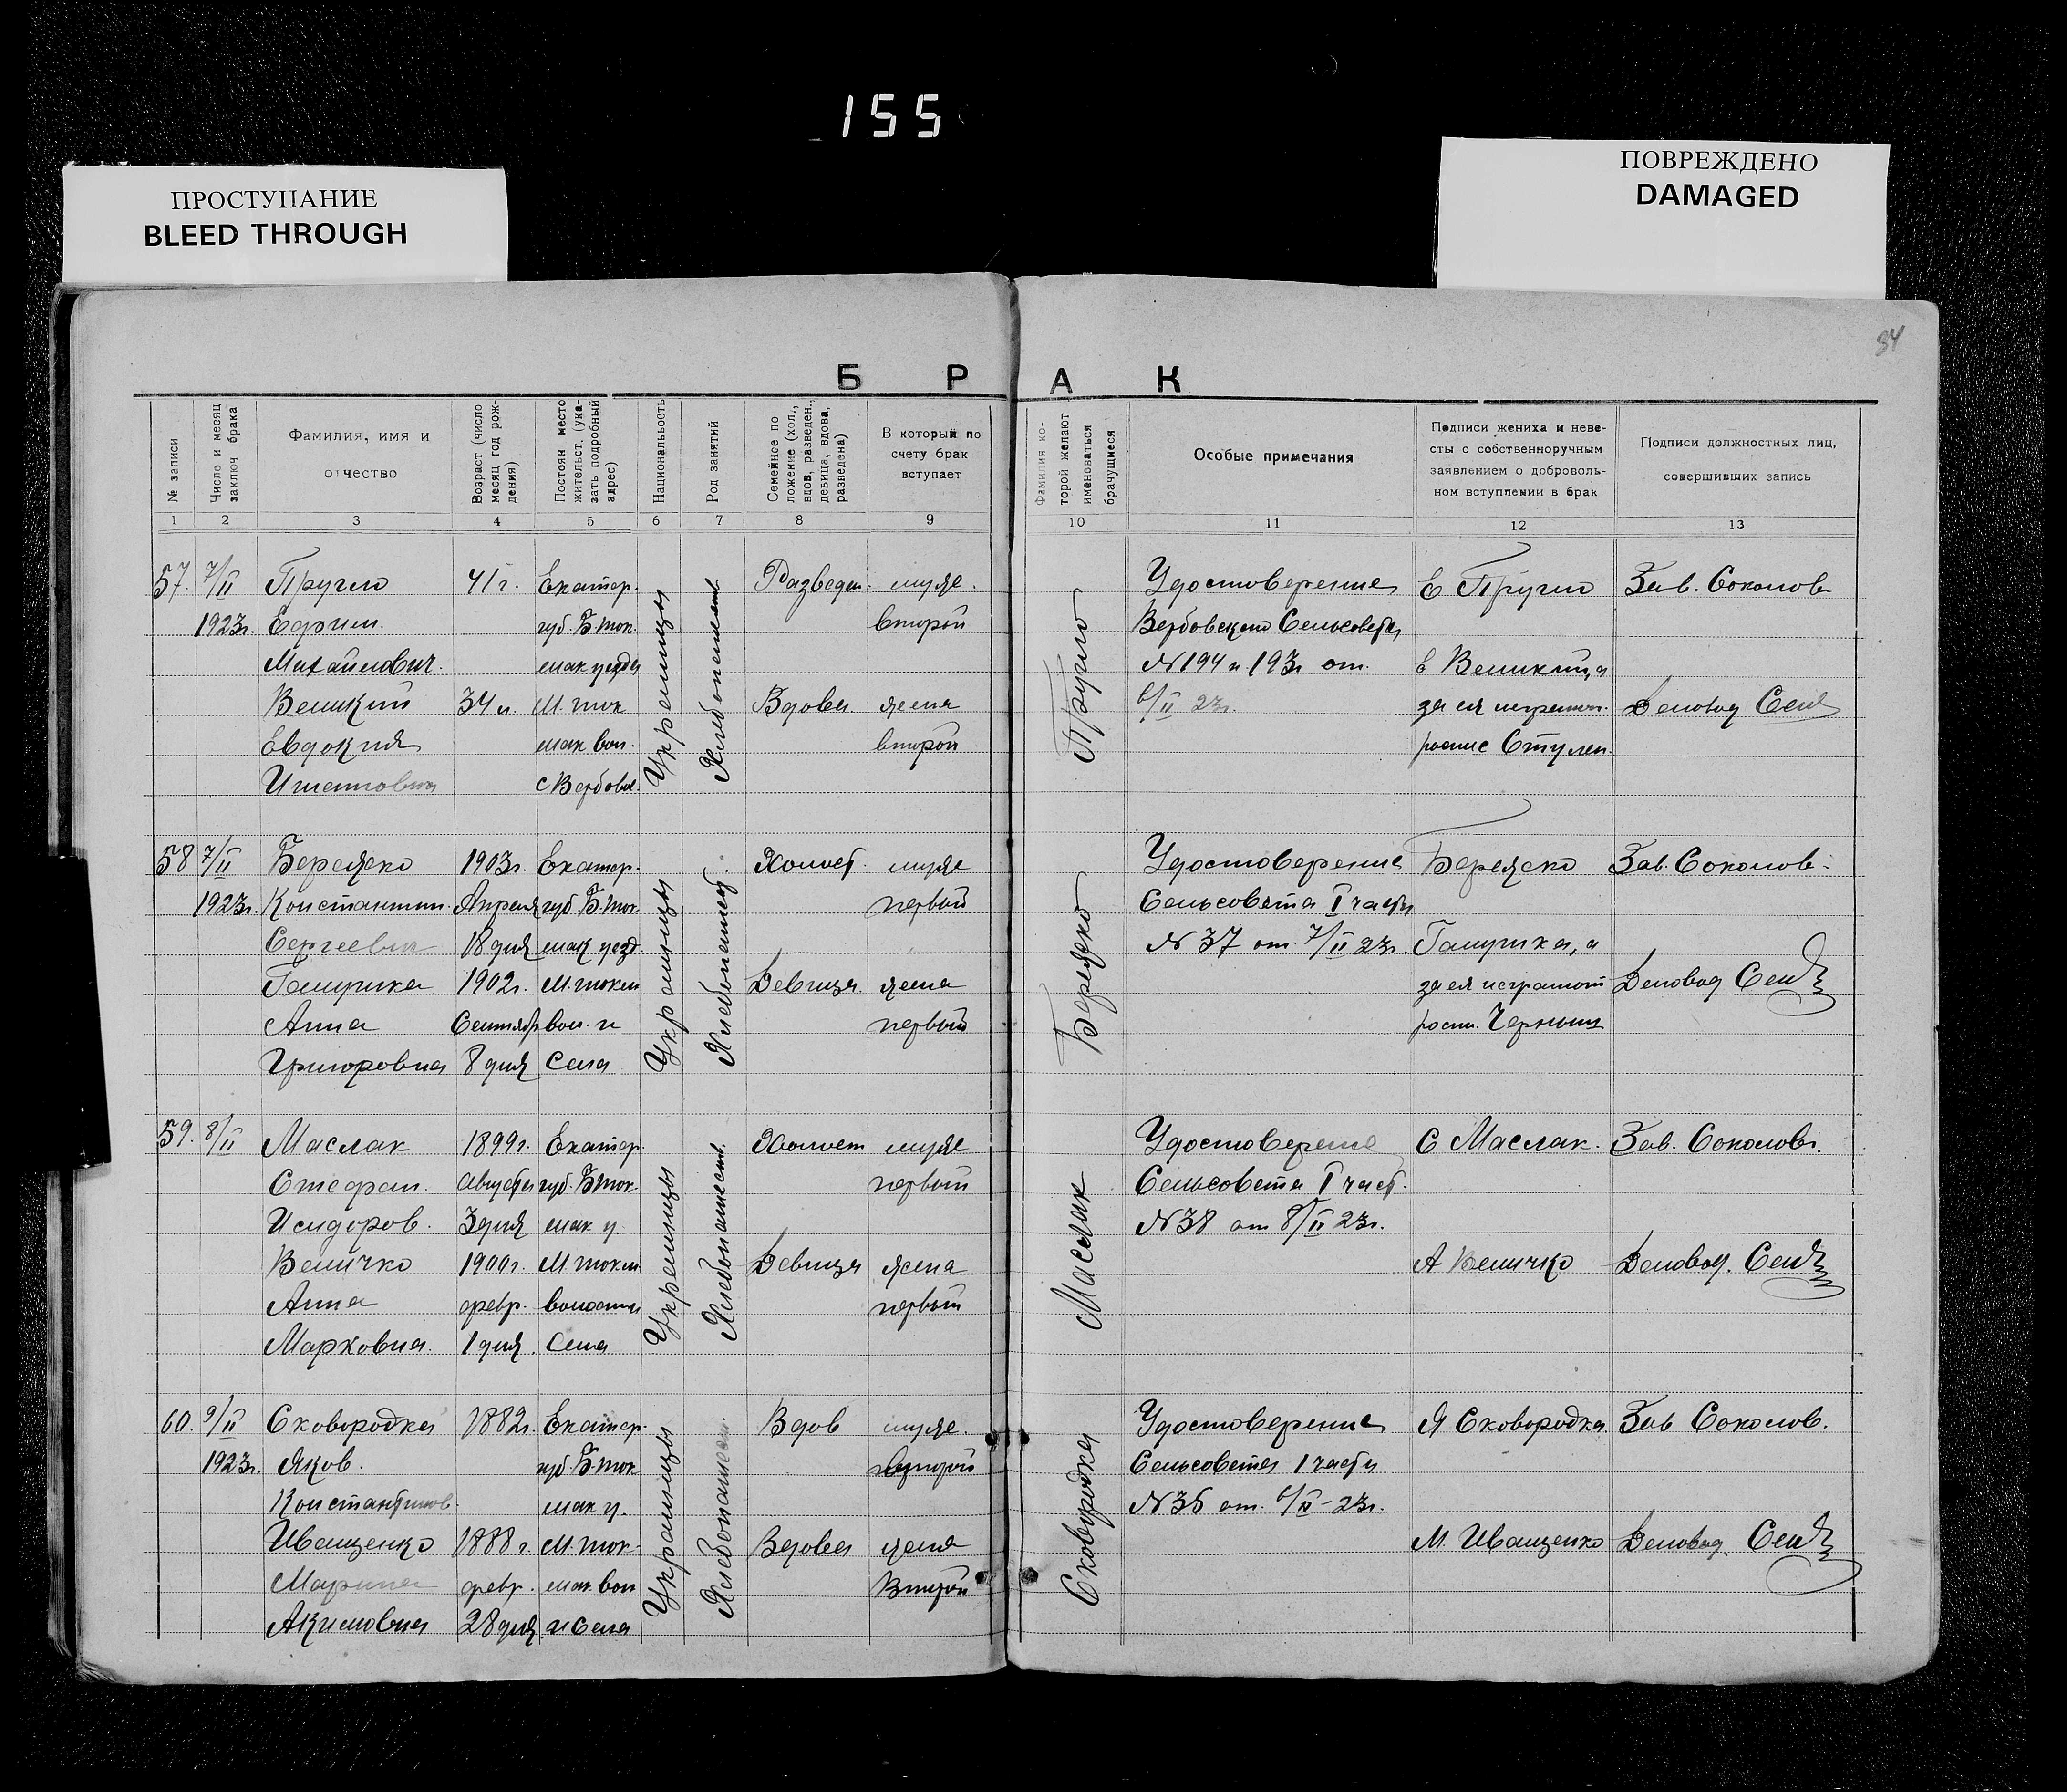 155
ПРОСТУПАНИЕ
BLEED THROUGH
ПОВРЕЖДЕНО
DAMAGED
84
БРАК
№ записи
Число и месяц заключ брака
Фамилия, имя и отчество
Возраст (число месяц год рождения)
Постоян место жительст. (указать подробный адрес)
Национальность
Род занятий
Семейное положение (хол., вдов, разведен., девица, вдова, разведена)
В который по счету брак вступает
Фамилия которой желают именоваться брачущиеся
Особые примечания
Подписи жениха и невесты с собственноручным заявлением о добровольном вступлении в брак
Подписи должностных лиц, совершивших запись
1 2 3 4 5 6 7 8 9 10 11 12 13
57. 7/II Пругло 41 г. Екатер. Разведен. муже. Удостоверение Е Пругло Зав. Соколов
1923г. Ефрим. губ. Б Ток. второй Вербовского Сельсовета
Михайлович. мак уезда № 194 и 193г от. Е Великий, а
Великий 34 л. М. ток Вдова жена 6/II 23г. за ея неграмот. Деловод
Евдокия мак вол. второй роспис
Игнатовна с Вербова.
Украинцы
Хлебопашест.
Пругло
58 7/II Бережко 1903г. Екатер. Холост. муже Удостоверение Бережко Зав. Соколов.
1923г. Константин. Апреля губ. Б Ток. первый Сельсовета I части
Сергеевич 18 дня мак уезд. № 37 от. 7/II 23г. Галушка, а
Галушка 1902г. М. токм Девица. жена за ея неграмот Деловод
Анна Сентябр вол. и первый роспи. Черныш
Григоровна 8 дня Села
Украинцы
Хлебопашест.
Бережко
59. 8/II Маслак 1899г. Екатер. Холост муже Удостоверение С Маслак. Зав. Соколов.
Стефан. Августа губ. Б Ток. первый Сельсовета I част.
Исидоров. 3 дня мак у. № 38 от 8/II 23г.
Величко 1900г. М токм Девица жена А Величко Деловод.
Анна февр. волости первый
Марковна. 1 дня. Села
Украинцы
Хлебопашест.
Маслак
60. 9/II Сковородка 1882г. Екатер. Вдов муже. Удостоверение Я Сковородка Зав Соколов.
1923г. Яков. губ. Б. ток второй Сельсовета 1 части
Константинов. мак у. № 35 от. 6/II-23г.
Иващенко 1888г. М. ток. Вдова жена М. Иващенко Деловод.
Марина февр. мак вол Второй
Акимовна 28 дня и Села
Украинцы
Хлебопашест.
Сковородка